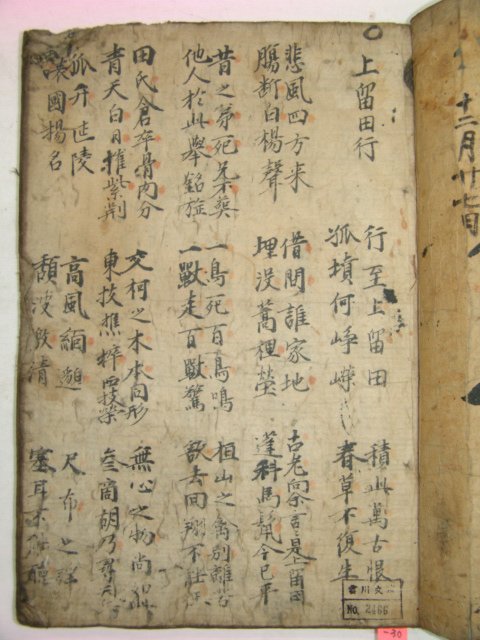 十二月廿七日
上留田行
行至上留田
孤墳何崢嶸
積此萬古恨
春草不復生
悲風四方来
膓断白楊聲
借問誰家地
埋没萬裡塋
古老向余言是上留田
蓬科馬鬣今已平
昔之弟死兄不葬
他人於此舉銘旌
一鳥死百鳥鳴
一獸走百獸驚
桓山之禽別離苦
欲去回翔不
田氏倉卒骨肉分
青天白日摧紫荊
交柯之木本同形
東枝憔悴西枝榮
無心之物尚如
參商胡乃尋
孤竹延陵
國揚名
高風緬邈
頹波激清
尺布之謠
塞耳不
No. 2466
-30